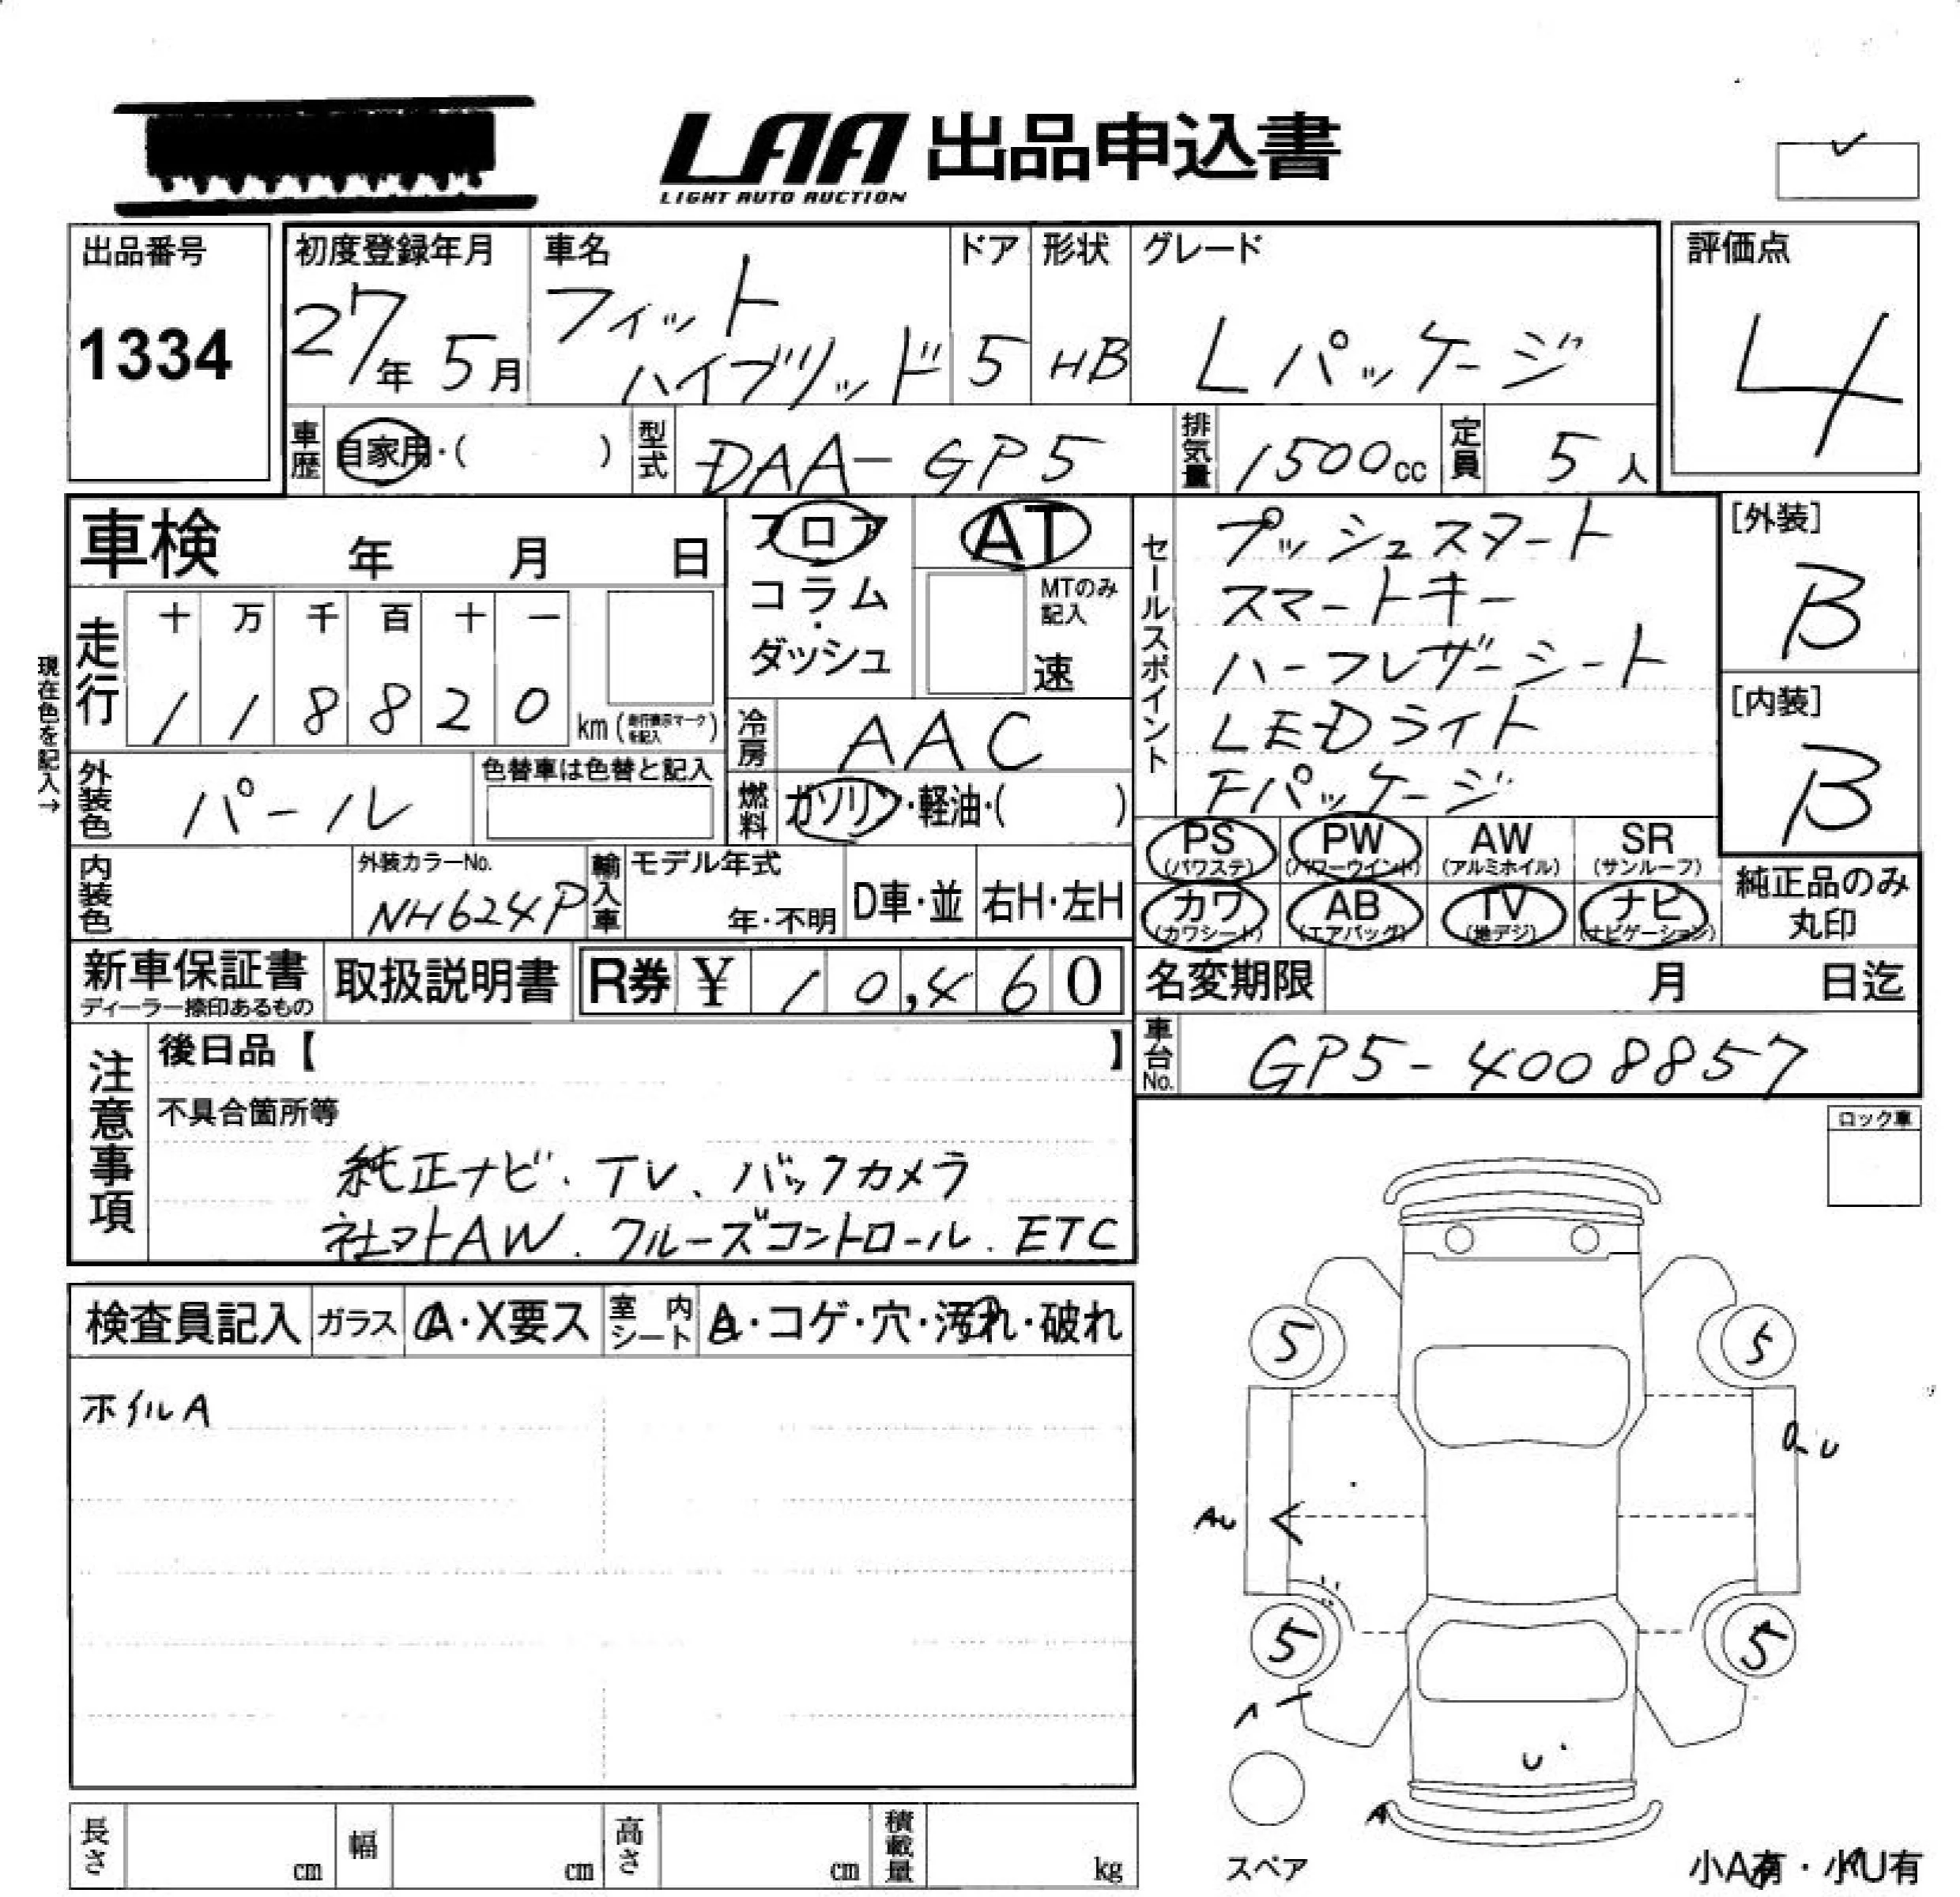 LAA 出品申込書
LIGHT AUTO AUCTION
出品番号
1334
初度登録年月
27年 5月
車名
フィット
ハイブリッド
ドア
5
形状
HB
グレード
Lパッケージ
評価点
4
車歴 自家用・( )
型式 DAA-GP5
排気量 1500cc
定員 5人
車検 年 月 日
フロア
コラム
・
ダッシュ
AT
MTのみ
記入
速
セールスポイント
プッシュスタート
スマートキー
ハーフレザーシート
LEDライト
Fパッケージ
[外装]
B
[内装]
B
現在色を記入→
走行
十 万 千 百 十 一
1 1 8 8 2 0
km (走行表示マークを記入)
冷房 AAC
外装色 パール
色替車は色替と記入
燃料 ガソリン・軽油・( )
PS (パワステ)
PW (パワーウインド)
AW (アルミホイル)
SR (サンルーフ)
カワ (カワシート)
AB (エアバッグ)
TV (地デジ)
ナビ (ナビゲーション)
純正品のみ
丸印
内装色
外装カラーNo.
NH624P
輸入車
モデル年式
年・不明
D車・並
右H・左H
新車保証書
ディーラー捺印あるもの
取扱説明書
R券 ¥ 10,460
名変期限 月 日迄
車台No. GP5-4008857
注意事項
後日品【 】
不具合箇所等
純正ナビ、TV、バックカメラ
社外AW、クルーズコントロール、ETC
ロック車
検査員記入
ガラス A・X要ス
室内シート A・コゲ・穴・汚れ・破れ
ホイルA
5
5
U
AU
5
5
U
A
スペア
小A有・小U有
長さ cm
幅 cm
高さ cm
積載量 kg